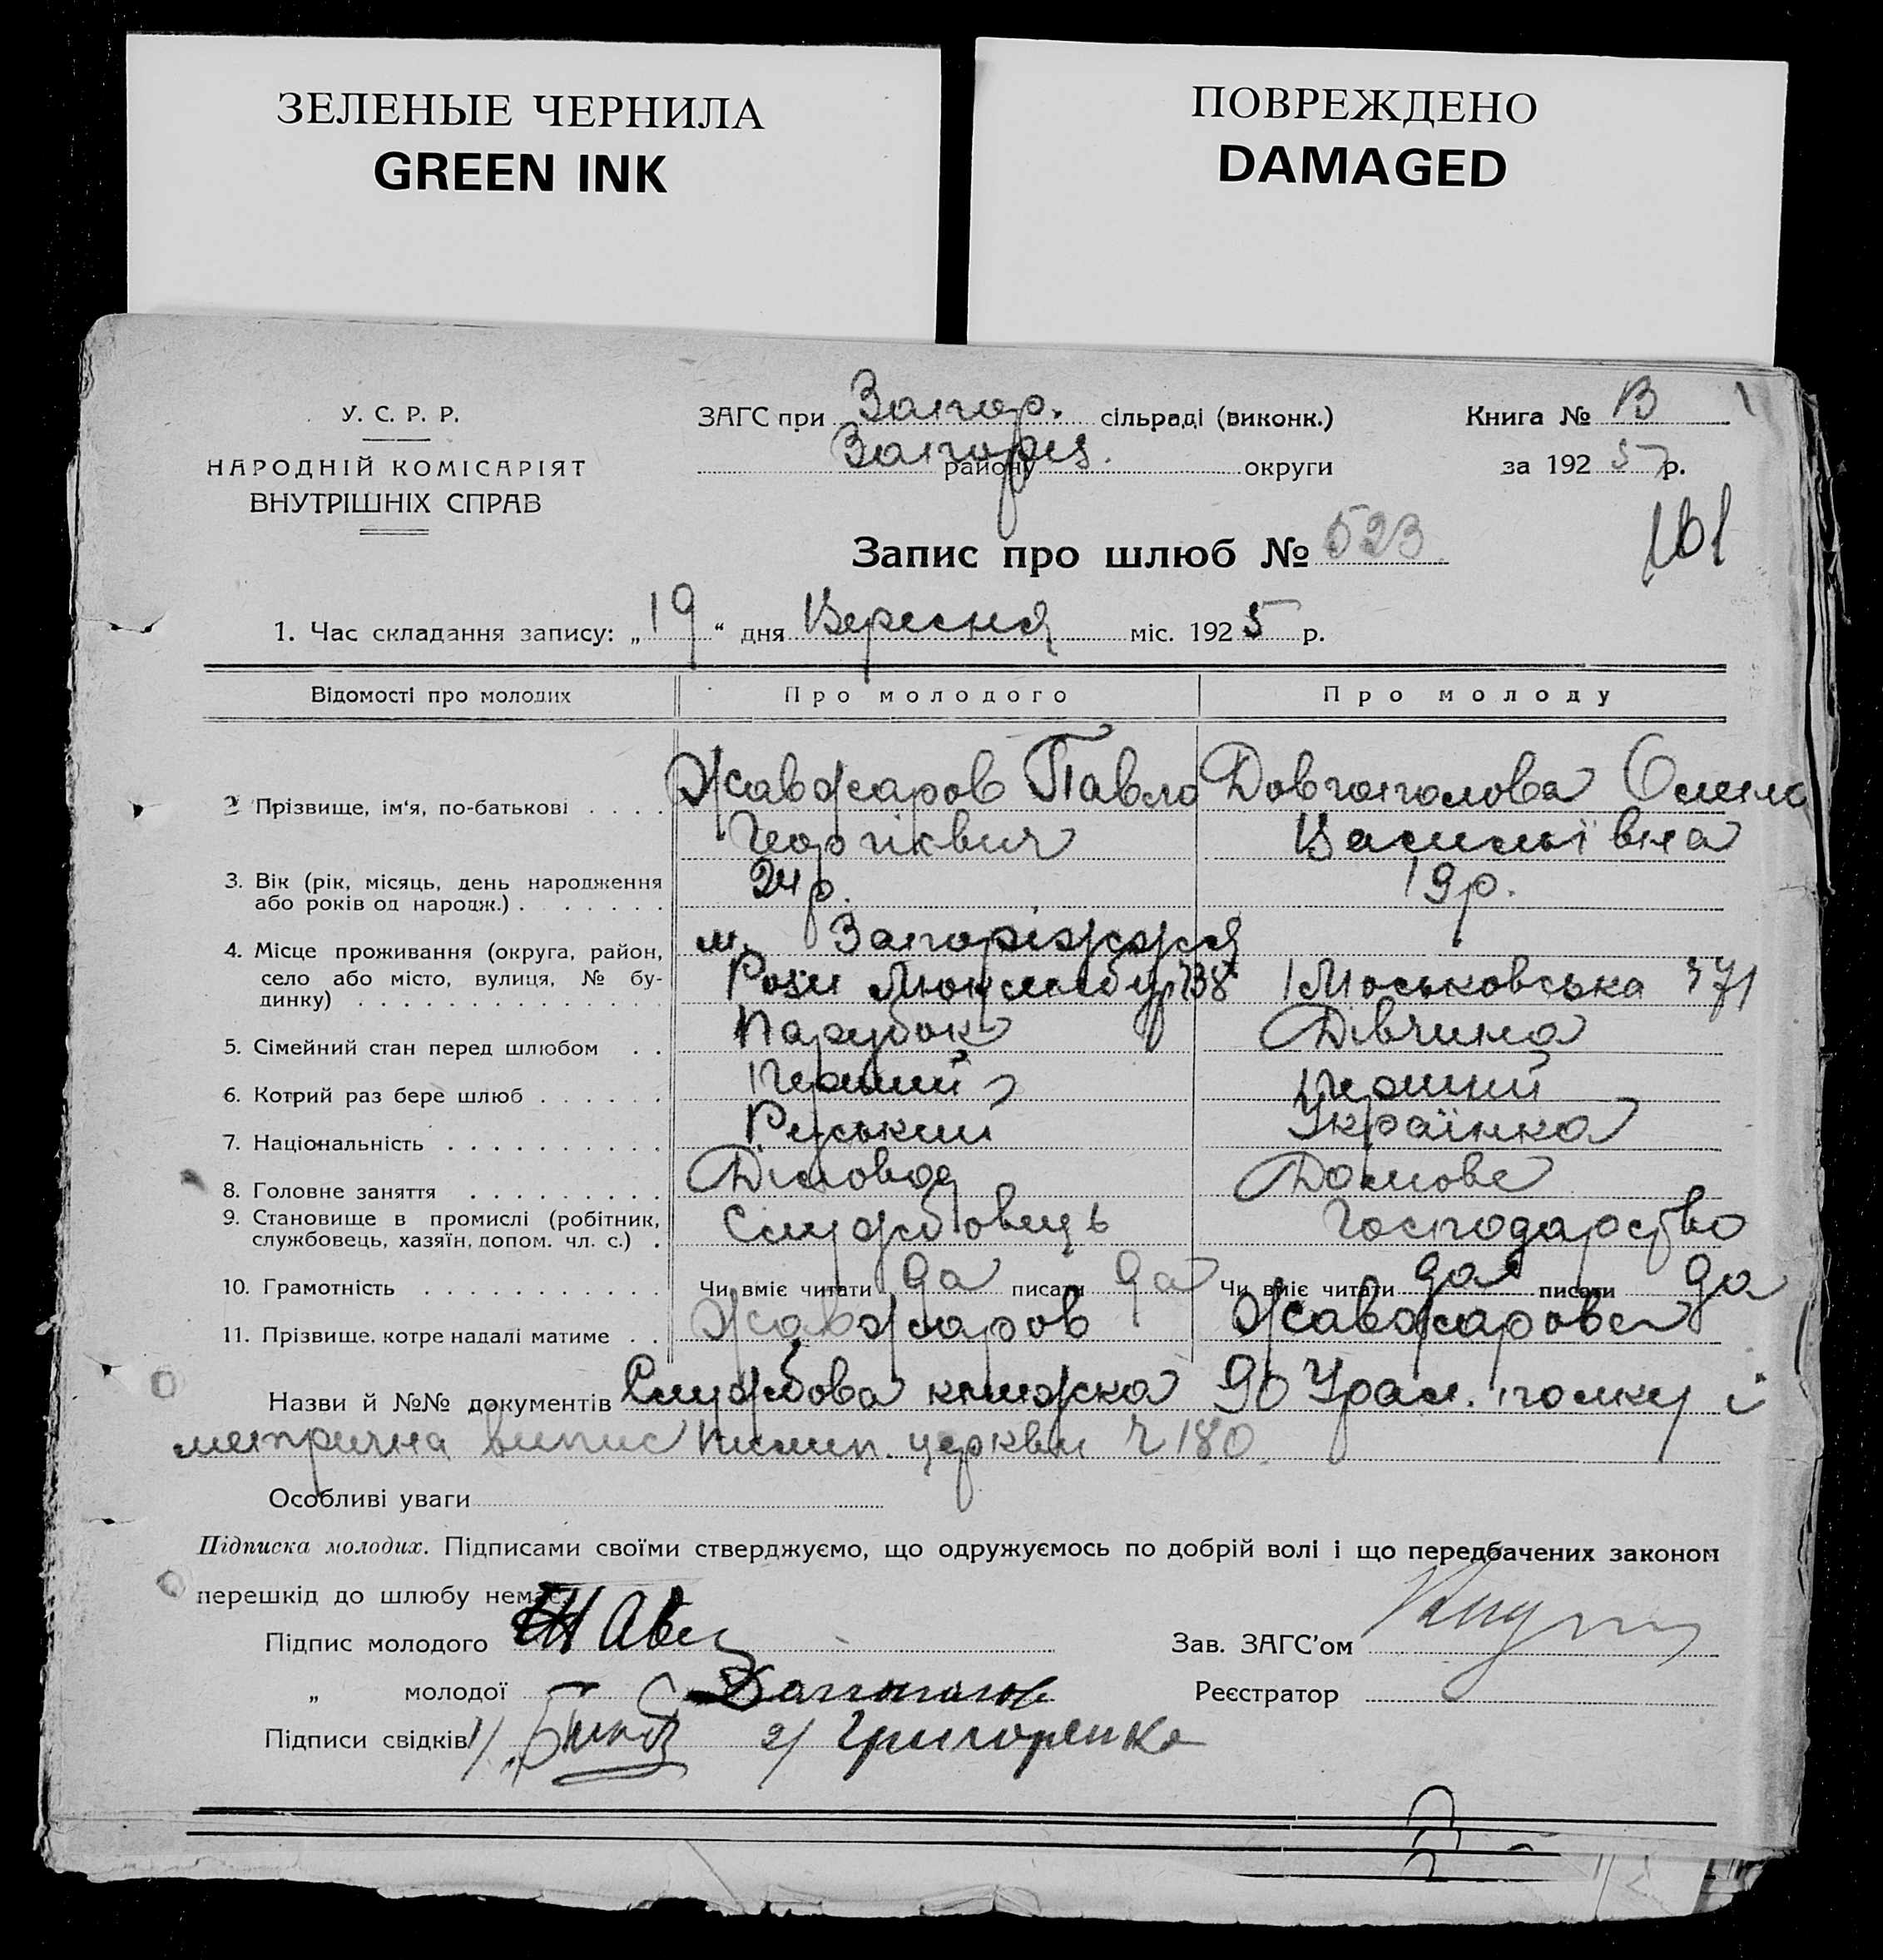 ЗЕЛЕНЫЕ ЧЕРНИЛА
GREEN INK
ПОВРЕЖДЕНО
DAMAGED
У. С. Р. Р.
НАРОДНІЙ КОМІСАРІЯТ
ВНУТРІШНІХ СПРАВ
ЗАГС при Запор. сільраді (виконк.)
Запоріз. району округи
Книга № В
за 1925 р.
161
Запис про шлюб № 523
1. Час складання запису: „19“ дня Вересня міс. 1925 р.
Відомості про молодих Про молодого Про молоду
2 Прізвище, ім'я, по-батькові . . . . Жавжаров Павло Довгополова Олена
Георгієвич Васильівна
3. Вік (рік, місяць, день народження 24р. 19р.
або років од народж.) . . . . . .
4. Місце проживання (округа, район, м. Запоріжжя
село або місто, вулиця, № бу- Рози Люксембур 38 Московська 71
динку) . . . . . . . . . . . . . .
5. Сімейний стан перед шлюбом . . Парубок Дівчина
6. Котрий раз бере шлюб . . . . . . Перший Перший
7. Національність . . . . . . . . . . Руський Українка
8. Головне заняття . . . . . . . . . Діловод Домове
9. Становище в промислі (робітник, Службовець Господарство
службовець, хазяїн, допом. чл. с.) .
10. Грамотність . . . . . . . . . . . Чи вміє читати да писати да Чи вміє читати да писати да
11. Прізвище, котре надалі матиме . . Жавжаров Жавжарова
Назви й №№ документів Службова книжка 90 Урал. полку і
метрична випис церкви ч 180
Особливі уваги
Підписка молодих. Підписами своїми стверджуємо, що одружуємось по добрій волі і що передбачених законом
перешкід до шлюбу немає.
Підпис молодого Жав
Зав. ЗАГС'ом
„ молодої
Реєстратор
Підписи свідків 1/ 2/ Григоренко